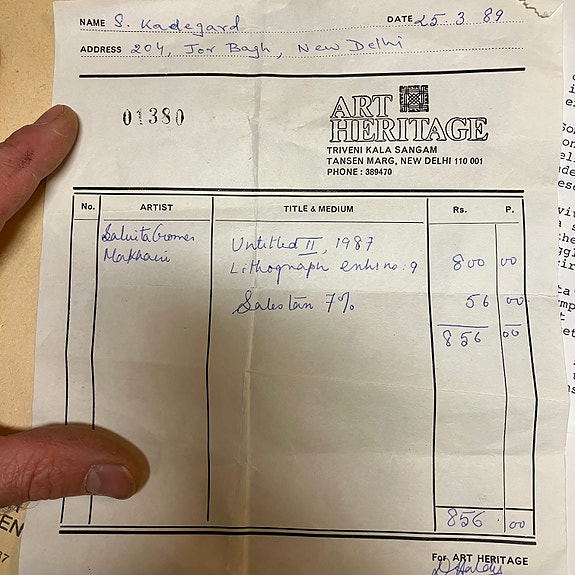 NAME S. Kadegard DATE 25.3.89
ADDRESS 204, Jor Bagh, New Delhi
01380
ART
HERITAGE
TRIVENI KALA SANGAM
TANSEN MARG, NEW DELHI 110 001
PHONE : 389470
No. ARTIST TITLE & MEDIUM Rs. P.
Untitled II, 1987
Lithograph no: 9 800 00
Sales tax 7% 56 00
856 00
856 00
For ART HERITAGE